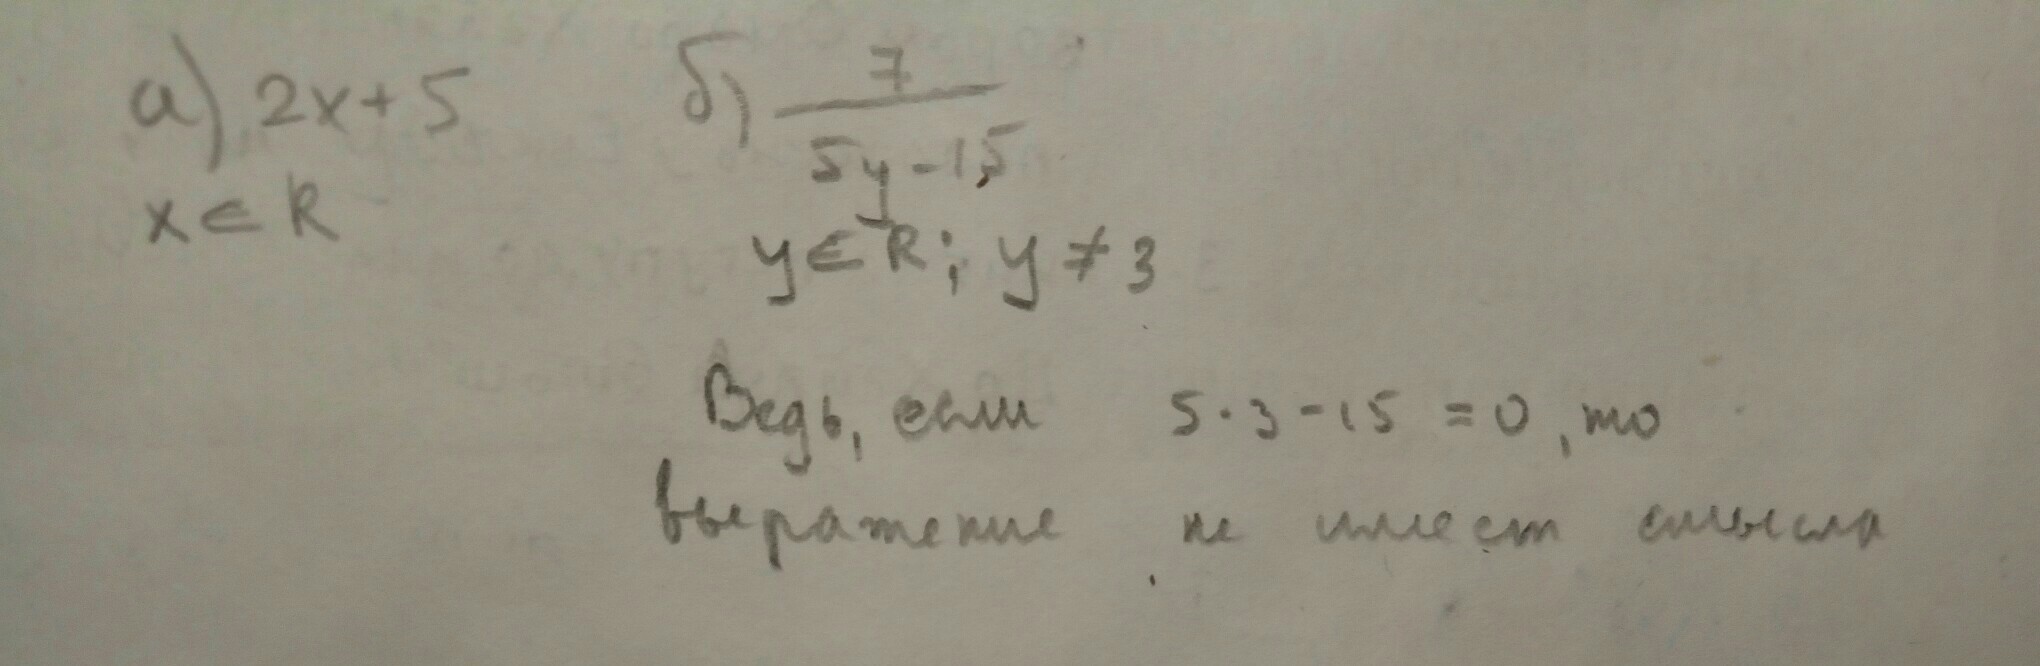 а) 2x+5
x∈R
б) 7/(5y-15)
y∈R; y≠3
Ведь, если 5·3-15=0, то
выражение не имеет смысла